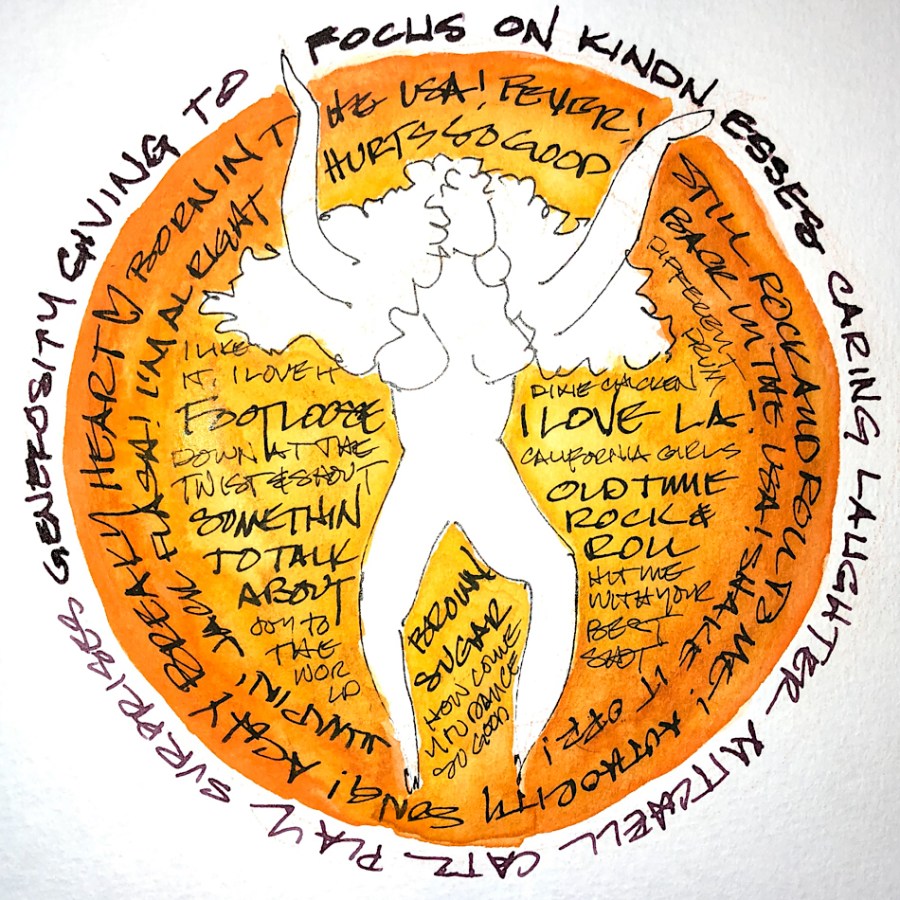 FOCUS ON KINDNESSES CARING LAUGHTER MITCHELL CATZ PLAY SURPRISES GENEROSITY GIVING TO
ACHY BREAKY HEART BORN IN THE USA! FEVER!
STILL ROCK AND ROLL TO ME! AUTHORITY SONG!
JUMPIN' JACK FLASH! I'M ALRIGHT
HURTS SO GOOD
BACK IN THE USA! SHAKE IT OFF!
DIFFERENT DRUM
I LIKE
IT, I LOVE IT
FOOTLOOSE
DOWN AT THE
TWIST & SHOUT
SOMETHIN
TO TALK
ABOUT
JOY TO
THE
WOR
LD
DIXIE CHICKEN
I LOVE LA
CALIFORNIA GIRLS
OLD TIME
ROCK &
ROLL
HIT ME
WITH YOUR
BEST
SHOT
BROWN
SUGAR
HOW COME
YOU DANCE
SO GOOD